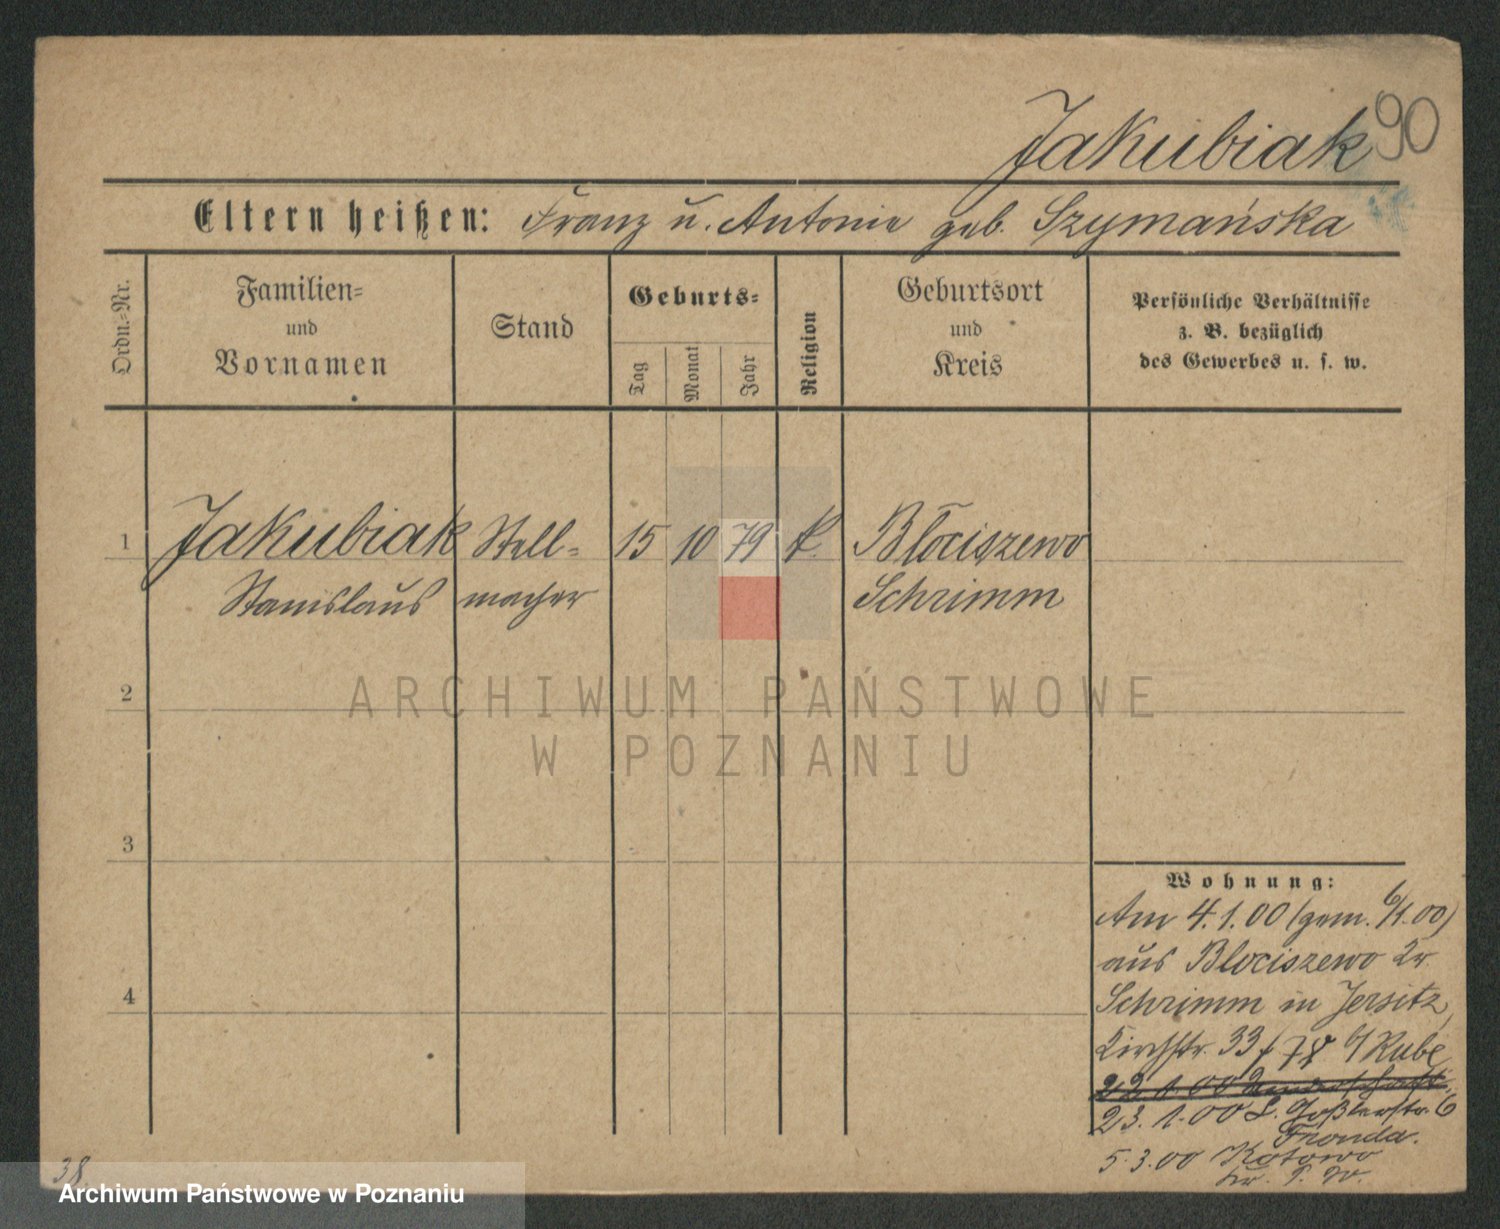 Jakubiak 90
Eltern heißen: Franz u. Antonie geb. Szymańska
Ordn.-Nr.
Familien-
und
Vornamen
Stand
Geburts-
Tag
Monat
Jahr
Religion
Geburtsort
und
Kreis
Persönliche Verhältnisse
z. B. bezüglich
des Gewerbes u. s. w.
1 Jakubiak Stell- 15 10 79 k. Błociszewo
Stanislaus macher Schrimm
2
ARCHIWUM PAŃSTWOWE
W POZNANIU
3
4
Wohnung:
Am 4.1.00 (gem. 6/1.00)
aus Blociszewo Kr.
Schrimm in Jersitz,
Kirchstr. 33 b/ Rube
22.1.00
23.1.00 L. Goßlerstr. 6
Fronda.
5.3.00 Kotowo
Kr. P. W.
38.
Archiwum Państwowe w Poznaniu